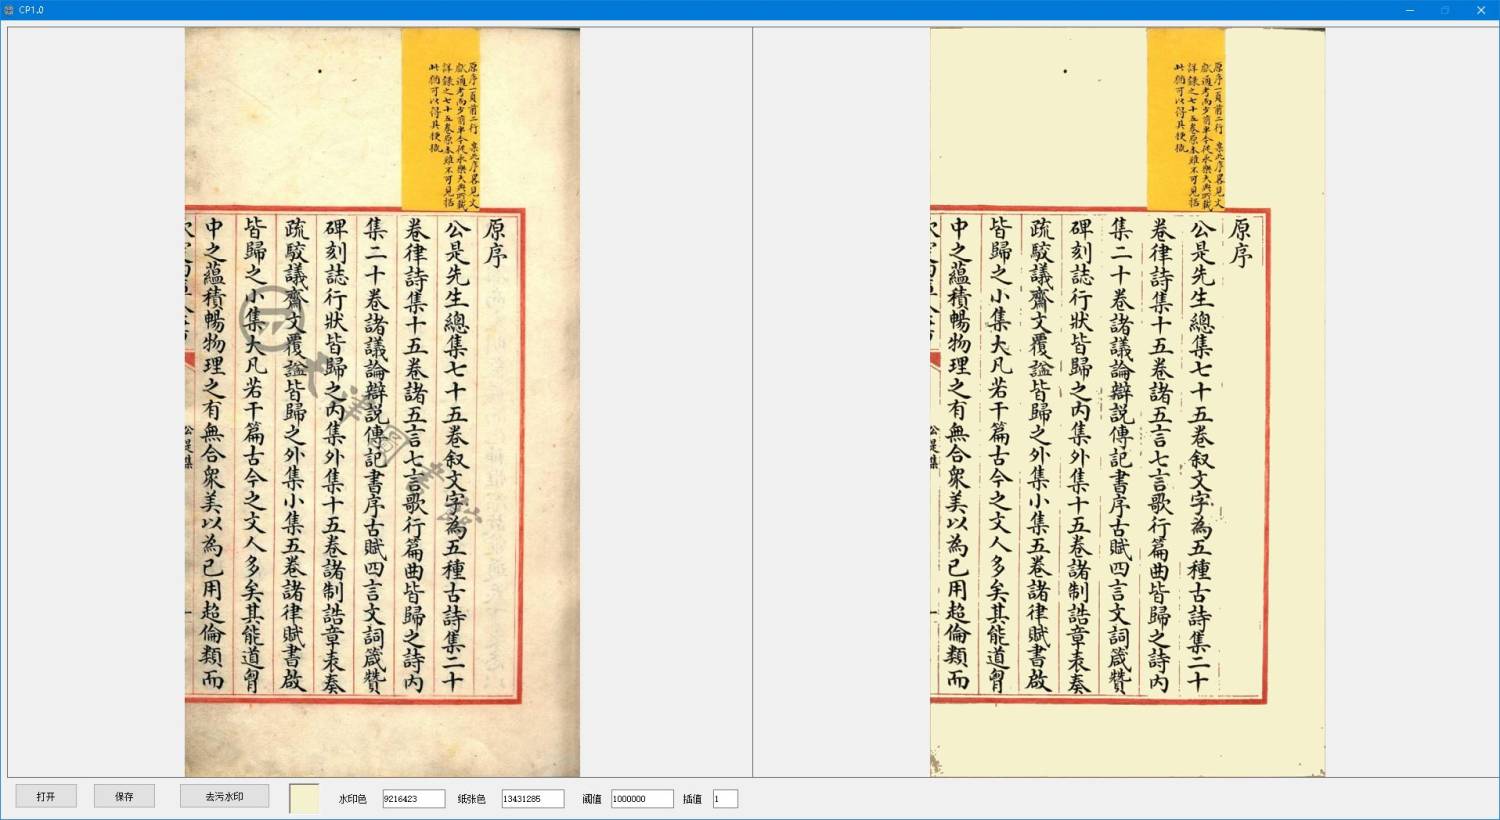 CP1.0
原序一頁前二行 案此序畧見文
獻通考而少前半今從永樂大典所載
詳錄之七十五卷原本雖不可見括
此猶可以得其梗概
原序
公是先生總集七十五卷叙文字為五種古詩集二十
卷律詩集十五卷諸五言七言歌行篇曲皆歸之詩内
集二十卷諸議論辯説傳記書序古賦四言文詞箴贊
碑刻誌行狀皆歸之内集外集十五卷諸制誥章表奏
疏駮議齋文覆謚皆歸之外集小集五卷諸律賦書啟
皆歸之小集大凡若干篇古今之文人多矣其能道胷
中之藴積暢物理之有無合衆美以為己用超倫類而
公是集
天津圖書館
原序一頁前二行 案此序畧見文
獻通考而少前半今從永樂大典所載
詳錄之七十五卷原本雖不可見括
此猶可以得其梗概
原序
公是先生總集七十五卷叙文字為五種古詩集二十
卷律詩集十五卷諸五言七言歌行篇曲皆歸之詩内
集二十卷諸議論辯説傳記書序古賦四言文詞箴贊
碑刻誌行狀皆歸之内集外集十五卷諸制誥章表奏
疏駮議齋文覆謚皆歸之外集小集五卷諸律賦書啟
皆歸之小集大凡若干篇古今之文人多矣其能道胷
中之藴積暢物理之有無合衆美以為己用超倫類而
公是集
打开 保存 去污水印 水印色 9216423 纸张色 13431285 阈值 1000000 插值 1